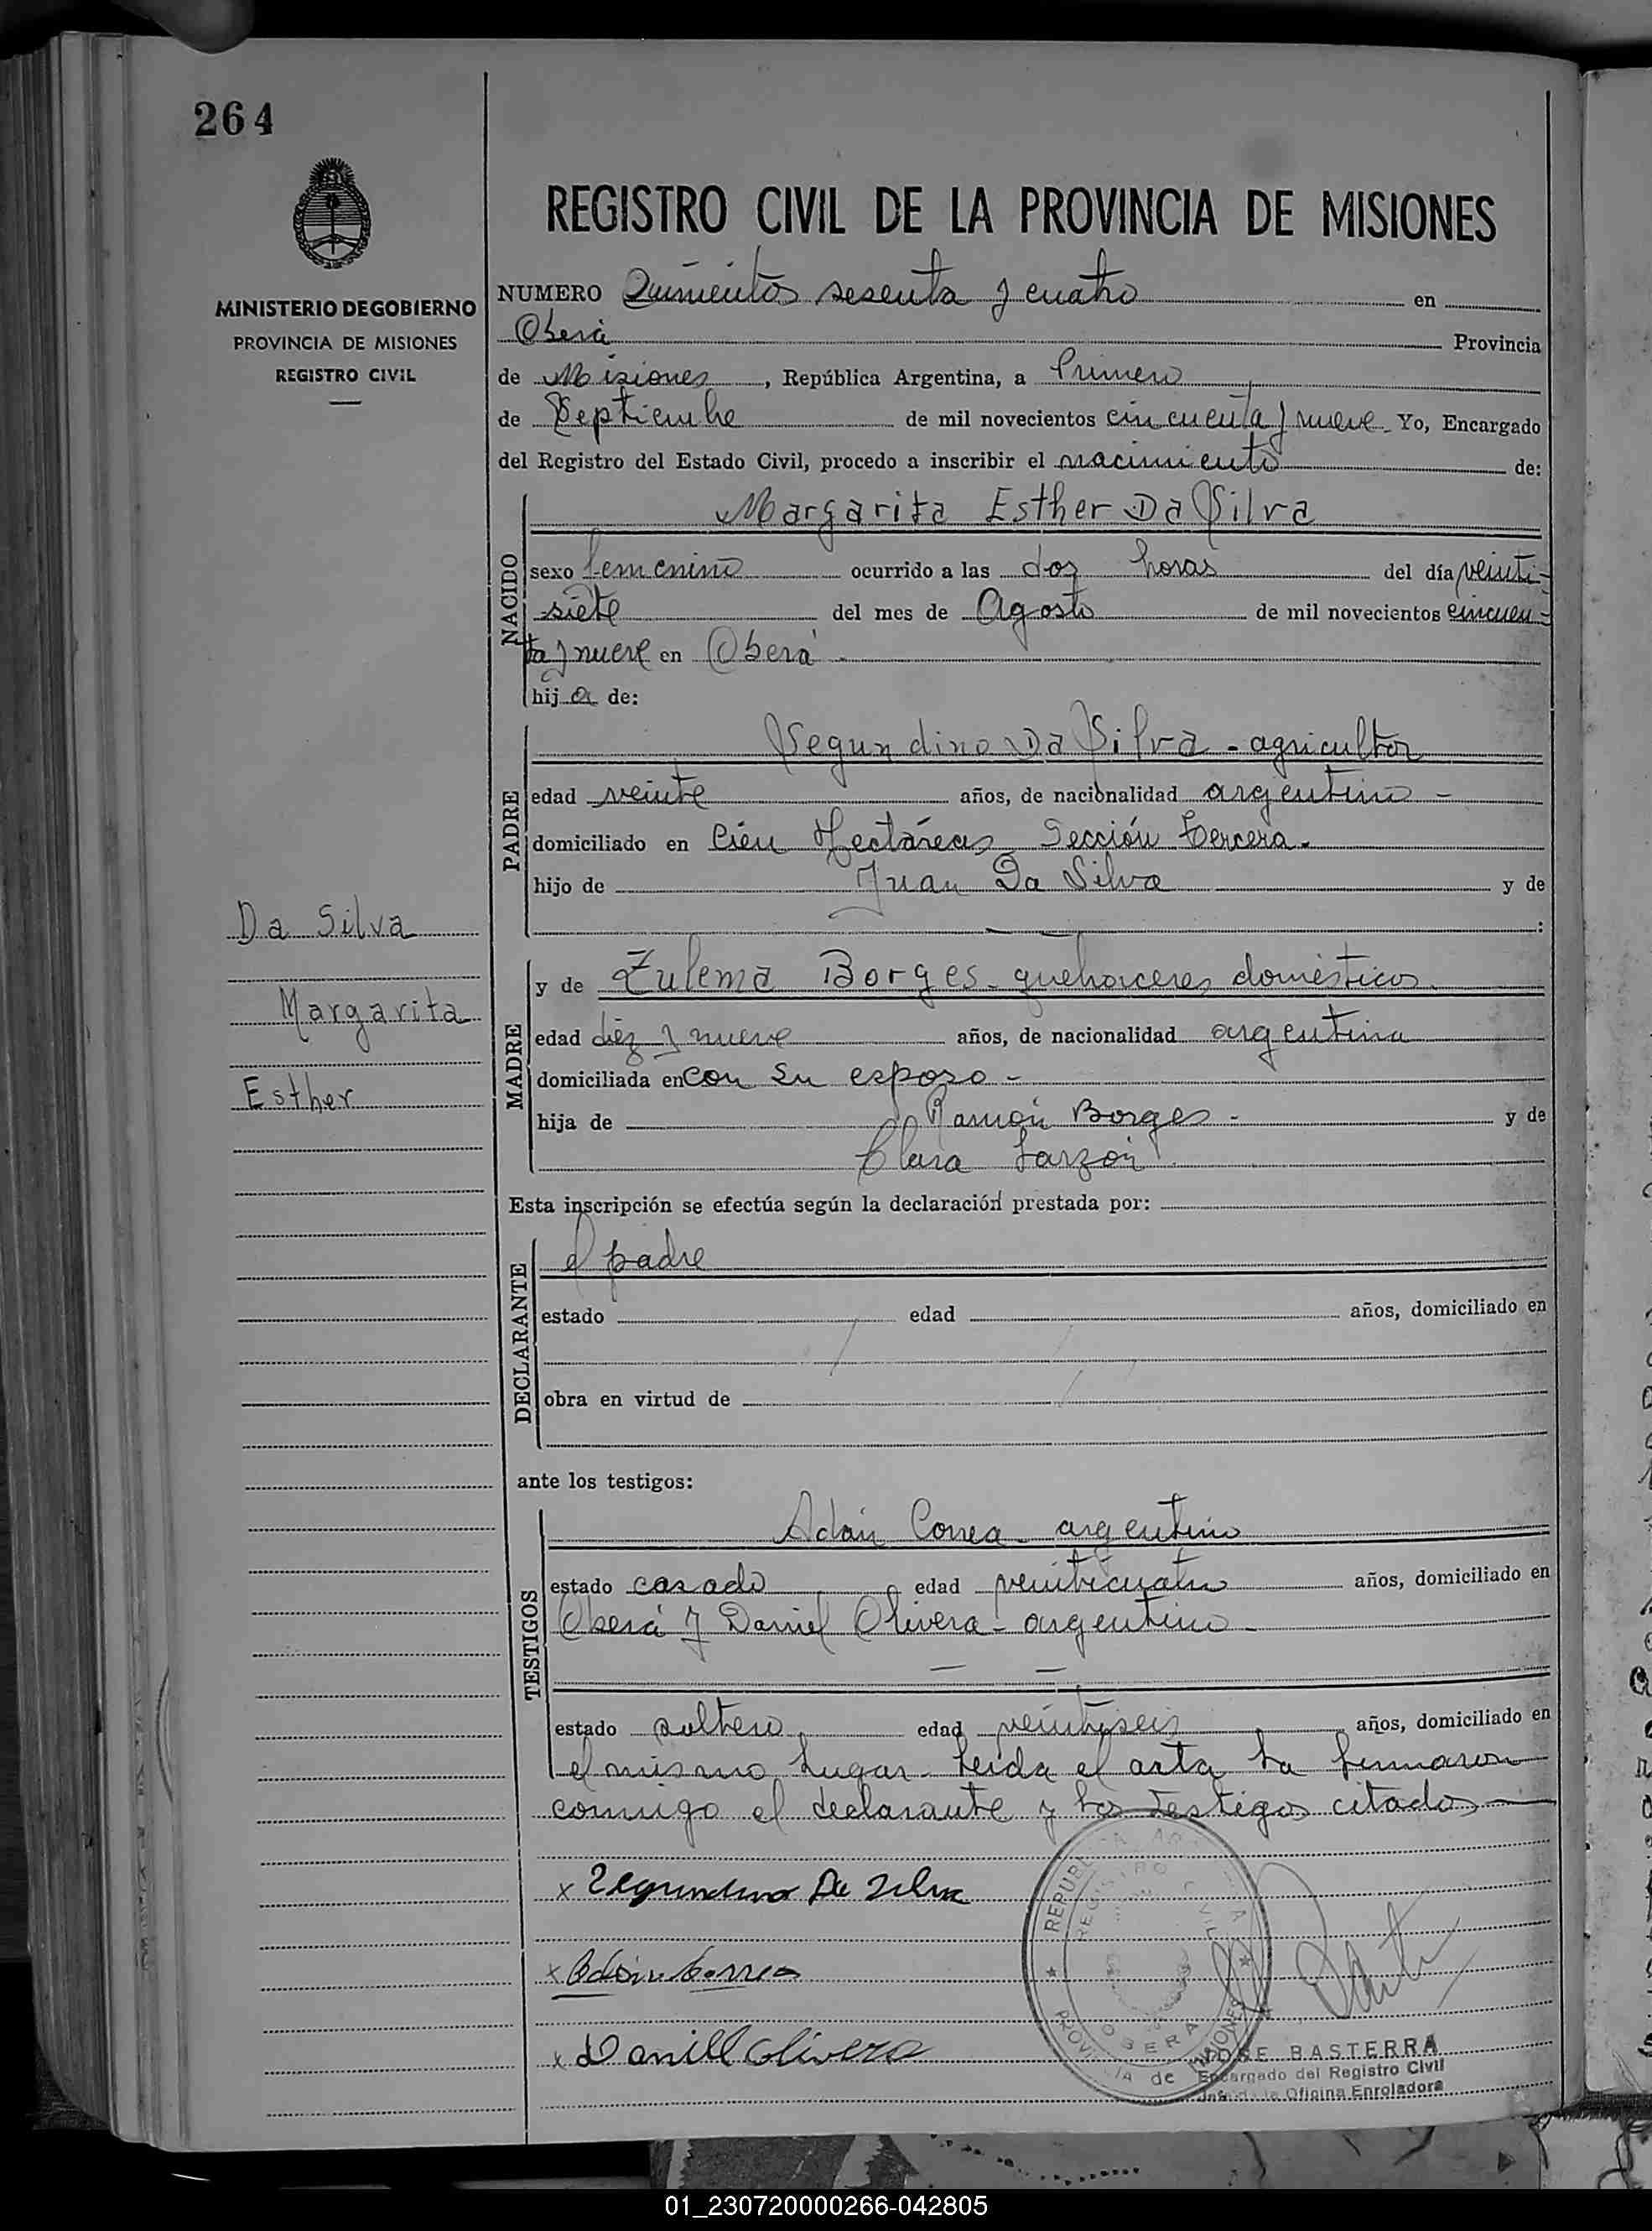 264
MINISTERIO DE GOBIERNO
PROVINCIA DE MISIONES
REGISTRO CIVIL
REGISTRO CIVIL DE LA PROVINCIA DE MISIONES
NUMERO Quinientos sesenta y cuatro en
Oberá Provincia
de Misiones, República Argentina, a Primero
de Septiembre de mil novecientos cincuenta y nueve Yo, Encargado
del Registro del Estado Civil, procedo a inscribir el nacimiento de:
NACIDO
Margarita Esther Da Silva
sexo femenino ocurrido a las dos horas del día veinti-
siete del mes de Agosto de mil novecientos cincuen-
ta y nueve en Oberá
hija de:
PADRE
Segundino Da Silva - agricultor
edad veinte años, de nacionalidad argentino -
domiciliado en Cien Hectáreas Sección tercera.
hijo de Juan Da Silva y de
:
MADRE
y de Zulema Borges - quehaceres domésticos
edad diez y nueve años, de nacionalidad argentina
domiciliada en con su esposo -
hija de Ramón Borges - y de
Clara Garzón
Da Silva
Margarita
Esther
Esta inscripción se efectúa según la declaración prestada por:
DECLARANTE
el padre
estado edad años, domiciliado en
obra en virtud de
ante los testigos:
TESTIGOS
Adán Correa - argentino
estado casado edad veinticuatro años, domiciliado en
Oberá y Daniel Olivera - argentino -
estado soltero edad veintiseis años, domiciliado en
el mismo lugar - leida el acta la firmaron
conmigo el declarante y los testigos citados
x Segundino Da Silva
x Adán Correa
x Daniel Olivera
REGISTRO CIVIL
OBERA
PROVINCIA de MISIONES
JOSE BASTERRA
Encargado del Registro Civil
Jefe de la Oficina Enroladora
01_230720000266-042805